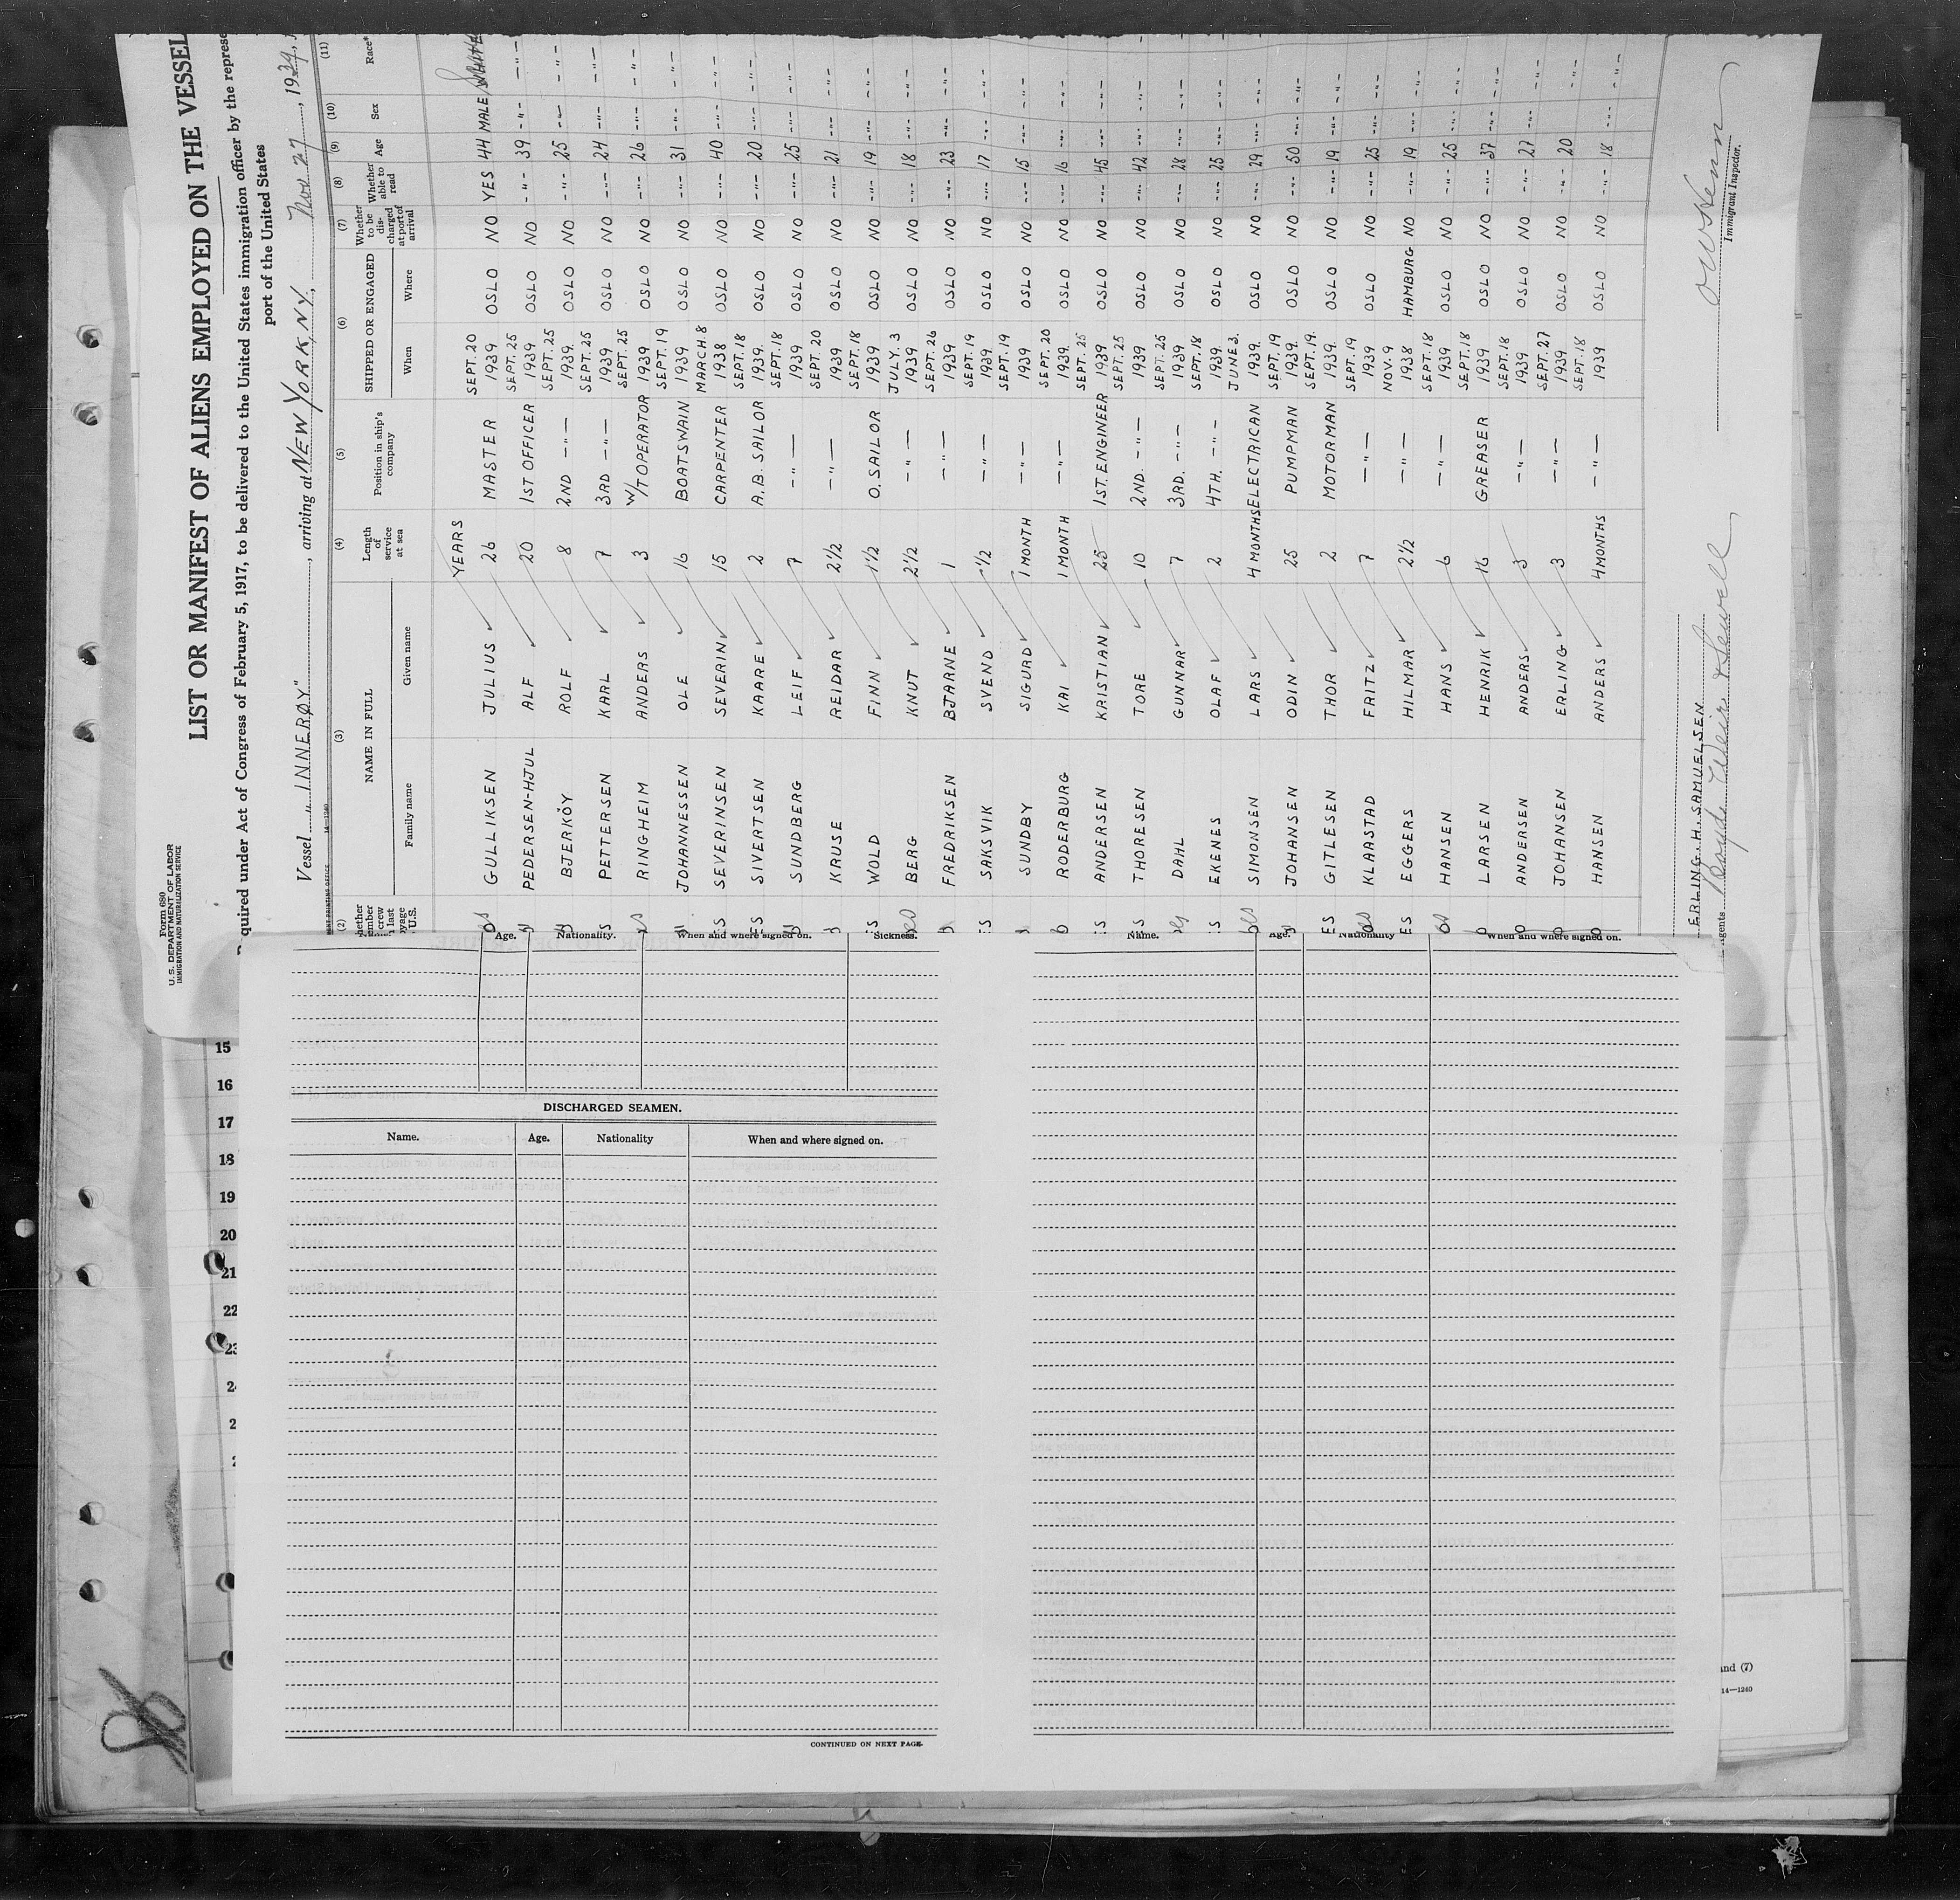 Form 680
U.S. DEPARTMENT OF LABOR
IMMIGRATION AND NATURALIZATION SERVICE
LIST OR MANIFEST OF ALIENS EMPLOYED ON THE VESSEL
quired under Act of Congress of February 5, 1917, to be delivered to the United States immigration officer by the represe
port of the United States
Vessel "INNERØY", arriving at NEW YORK, N.Y., Nov 27, 1939,
14—1240
(2) (3) (4) (5) (6) (7) (8) (9) (10) (11)
NAME IN FULL Length of service at sea Position in ship's company SHIPPED OR ENGAGED Whether to be discharged at port of arrival Whether able to read Age Sex Race*
Family name Given name When Where
YEARS
GULLIKSEN JULIUS 26 MASTER SEPT. 20 1939 OSLO NO YES 44 MALE
PEDERSEN-HJUL ALF 20 1ST OFFICER SEPT. 25 1939 OSLO NO -"- 39 -"- -"-
BJERKÖY ROLF 8 2ND -"- SEPT. 25 1939. OSLO NO -"- 25 -"- -"-
PETTERSEN KARL 7 3RD -"- SEPT. 25 1939 OSLO NO -"- 24 -"- -"-
RINGHEIM ANDERS 3 W/T OPERATOR SEPT. 25 1939 OSLO NO -"- 26 -"- -"-
JOHANNESSEN OLE 16 BOATSWAIN SEPT. 19 1939 OSLO NO -"- 31 -"- -"-
SEVERINSEN SEVERIN 15 CARPENTER MARCH. 8 1938 OSLO NO -"- 40 -"- -"-
SIVERTSEN KAARE 2 A.B. SAILOR SEPT. 18 1939. OSLO NO -"- 20 -"- -"-
SUNDBERG LEIF 7 -"- SEPT. 18 1939 OSLO NO -"- 25 -"- -"-
KRUSE REIDAR 2½ -"- SEPT. 20 1939 OSLO NO -"- 21 -"- -"-
WOLD FINN 1½ O. SAILOR SEPT. 18 1939 OSLO NO -"- 19 -"- -"-
BERG KNUT 2½ -"- JULY. 3 1939 OSLO NO -"- 18 -"- -"-
FREDRIKSEN BJARNE 1 -"- SEPT. 26 1939 OSLO NO -"- 23 -"- -"-
SAKSVIK SVEND ½ -"- SEPT. 19 1939 OSLO NO -"- 17 -"- -"-
SUNDBY SIGURD 1 MONTH -"- SEPT. 19 1939 OSLO NO -"- 15 -"- -"-
RODERBURG KAI 1 MONTH -"- SEPT. 20 1939. OSLO NO -"- 16 -"- -"-
ANDERSEN KRISTIAN 25 1ST. ENGINEER SEPT. 25 1939 OSLO NO -"- 45 -"- -"-
THORESEN TORE 10 2ND. -"- SEPT. 25 1939 OSLO NO -"- 42 -"- -"-
DAHL GUNNAR 7 3RD. -"- SEPT. 25 1939 OSLO NO -"- 28 -"- -"-
EKENES OLAF 2 4TH. -"- SEPT. 18 1939. OSLO NO -"- 25 -"- -"-
SIMONSEN LARS 4 MONTHS ELECTRICAN JUNE 3. 1939. OSLO NO -"- 29 -"- -"-
JOHANSEN ODIN 25 PUMPMAN SEPT. 19 1939. OSLO NO -"- 50 -"- -"-
GITLESEN THOR 2 MOTORMAN SEPT. 19. 1939. OSLO NO -"- 19 -"- -"-
KLAASTAD FRITZ 7 -"- SEPT. 19 1939 OSLO NO -"- 25 -"- -"-
EGGERS HILMAR 2½ -"- NOV. 9 1938 HAMBURG NO -"- 19 -"- -"-
HANSEN HANS 6 -"- SEPT. 18 1939 OSLO NO -"- 25 -"- -"-
LARSEN HENRIK 16 GREASER SEPT. 18 1939 OSLO NO -"- 37 -"- -"-
ANDERSEN ANDERS 3 -"- SEPT. 18 1939 OSLO NO -"- 27 -"- -"-
JOHANSEN ERLING 3 -"- SEPT. 27 1939 OSLO NO -"- 20 -"- -"-
HANSEN ANDERS 4 MONTHS -"- SEPT. 18 1939 OSLO NO -"- 18 -"- -"-
ERLING. H. SAMUELSEN
Boyd, Weir & Sewell
Immigrant Inspector.
Age. Nationality. When and where signed on. Sickness.
Name. Age. Nationality When and where signed on.
15
16
17
18
19
20
21
22
DISCHARGED SEAMEN.
Name. Age. Nationality When and where signed on.
CONTINUED ON NEXT PAGE.
and (7)
14—1240